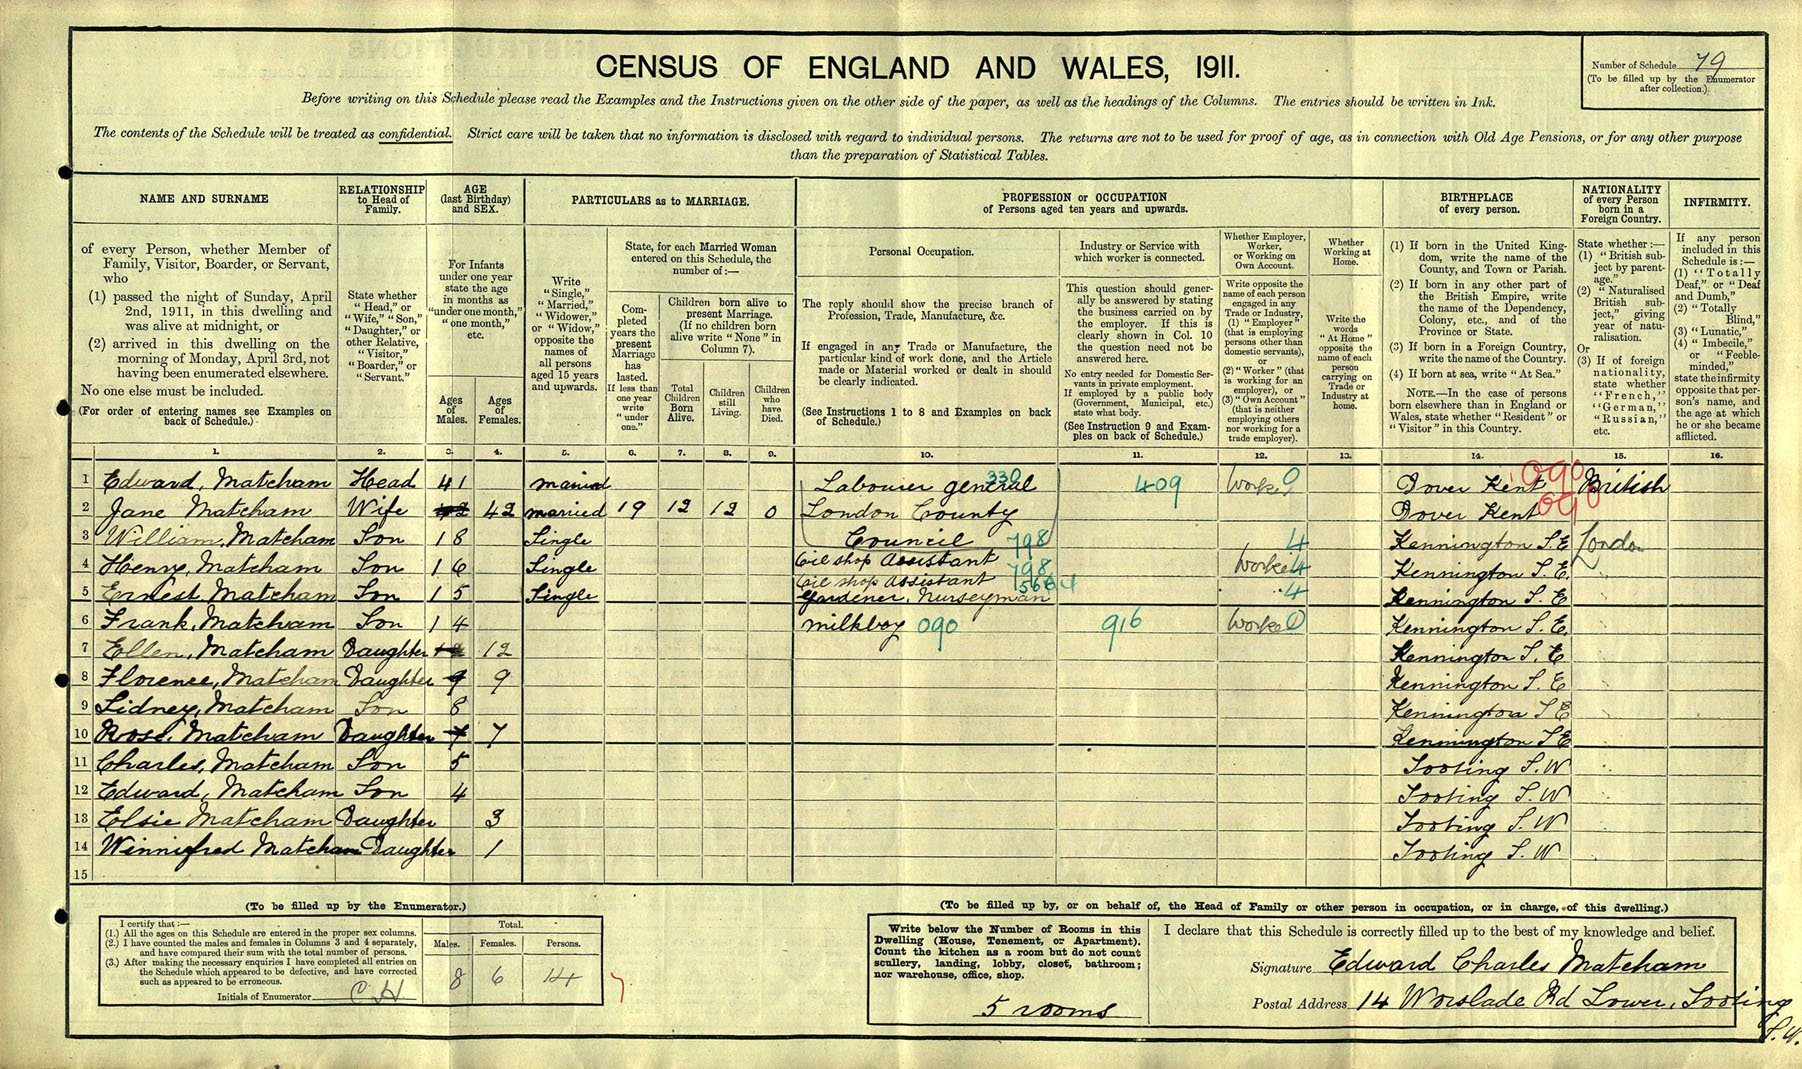 CENSUS OF ENGLAND AND WALES, 1911.
Number of Schedule 79
(To be filled up by the Enumerator
after collection.)
Before writing on this Schedule please read the Examples and the Instructions given on the other side of the paper, as well as the headings of the Columns. The entries should be written in Ink.
The contents of the Schedule will be treated as confidential. Strict care will be taken that no information is disclosed with regard to individual persons. The returns are not to be used for proof of age, as in connection with Old Age Pensions, or for any other purpose
than the preparation of Statistical Tables.
NAME AND SURNAME
of every Person, whether Member of
Family, Visitor, Boarder, or Servant,
who
(1) passed the night of Sunday, April
2nd, 1911, in this dwelling and
was alive at midnight, or
(2) arrived in this dwelling on the
morning of Monday, April 3rd, not
having been enumerated elsewhere.
No one else must be included.
(For order of entering names see Examples on
back of Schedule.)
RELATIONSHIP
to Head of
Family.
State whether
"Head," or
"Wife," "Son,"
"Daughter," or
other Relative,
"Visitor,"
"Boarder," or
"Servant."
AGE
(last Birthday)
and SEX.
For Infants
under one year
state the age
in months as
"under one month,"
"one month,"
etc.
Ages
of
Males.
Ages
of
Females.
PARTICULARS as to MARRIAGE.
Write
"Single,"
"Married,"
"Widower,"
or "Widow,"
opposite the
names of
all persons
aged 15 years
and upwards.
State, for each Married Woman
entered on this Schedule, the
number of:—
Com-
pleted
years the
present
Marriage
has
lasted.
If less than
one year
write
"under
one."
Children born alive to
present Marriage.
(If no children born
alive write "None" in
Column 7).
Total
Children
Born
Alive.
Children
still
Living.
Children
who
have
Died.
PROFESSION or OCCUPATION
of Persons aged ten years and upwards.
Personal Occupation.
The reply should show the precise branch of
Profession, Trade, Manufacture, &c.
If engaged in any Trade or Manufacture, the
particular kind of work done, and the Article
made or Material worked or dealt in should
be clearly indicated.
(See Instructions 1 to 8 and Examples on back
of Schedule.)
Industry or Service with
which worker is connected.
This question should gener-
ally be answered by stating
the business carried on by
the employer. If this is
clearly shown in Col. 10
the question need not be
answered here.
No entry needed for Domestic Ser-
vants in private employment.
If employed by a public body
(Government, Municipal, etc.)
state what body.
(See Instruction 9 and Exam-
ples on back of Schedule.)
Whether Employer,
Worker,
or Working on
Own Account.
Write opposite the
name of each person
engaged in any
Trade or Industry,
(1) "Employer"
(that is employing
persons other than
domestic servants),
or
(2) "Worker" (that
is working for an
employer), or
(3) "Own Account"
(that is neither
employing others
nor working for a
trade employer).
Whether
Working at
Home.
Write the
words
"At Home"
opposite the
name of each
person
carrying on
Trade or
Industry at
home.
BIRTHPLACE
of every person.
(1) If born in the United King-
dom, write the name of the
County, and Town or Parish.
(2) If born in any other part of
the British Empire, write
the name of the Dependency,
Colony, etc., and of the
Province or State.
(3) If born in a Foreign Country,
write the name of the Country.
(4) If born at sea, write "At Sea."
NOTE.—In the case of persons
born elsewhere than in England or
Wales, state whether "Resident" or
"Visitor" in this Country.
NATIONALITY
of every Person
born in a
Foreign Country.
State whether:—
(1) "British sub-
ject by parent-
age,"
(2) "Naturalised
British sub-
ject," giving
year of natu-
ralisation.
Or
(3) If of foreign
nationality,
state whether
"French,"
"German,"
"Russian,"
etc.
INFIRMITY.
If any person
included in this
Schedule is:—
(1) "Totally
Deaf," or "Deaf
and Dumb,"
(2) "Totally
Blind,"
(3) "Lunatic,"
(4) "Imbecile,"
or "Feeble-
minded,"
state the infirmity
opposite that per-
son's name, and
the age at which
he or she became
afflicted.
1. 2. 3. 4. 5. 6. 7. 8. 9. 10. 11. 12. 13. 14. 15. 16.
1 Edward, Matcham Head 41 married Labourer general 330 409 Worker 0 Dover Kent 090 British
2 Jane Matcham Wife 42 married 19 12 12 0 London County Dover Kent 090
3 William, Matcham Son 18 Single Council 798 4 Kennington S.E London
4 Henry, Matcham Son 16 Single Oil shop Assistant 798 Worker 4 Kennington S.E.
Oil shop Assistant
5 Ernest Matcham Son 15 Single Gardener, Nurseyman 4 Kennington S.E
6 Frank, Matcham Son 14 milkboy 090 916 Worker 0 Kennington S.E.
7 Ellen, Matcham Daughter 12 Kennington S.E
8 Florence, Matcham Daughter 9 9 Kennington S.E
9 Sidney, Matcham Son 8 Kennington S E
10 Rose, Matcham Daughter 7 7 Kennington S E
11 Charles, Matcham Son 5 Tooting S.W
12 Edward, Matcham Son 4 Tooting S.W
13 Elsie Matcham Daughter 3 Tooting S.W
14 Winnifred Matcham Daughter 1 Tooting S.W
15
(To be filled up by the Enumerator.)
I certify that:—
(1.) All the ages on this Schedule are entered in the proper sex columns.
(2.) I have counted the males and females in Columns 3 and 4 separately,
and have compared their sum with the total number of persons.
(3.) After making the necessary enquiries I have completed all entries on
the Schedule which appeared to be defective, and have corrected
such as appeared to be erroneous.
Initials of Enumerator C H
Total.
Males. Females. Persons.
8 6 14
(To be filled up by, or on behalf of, the Head of Family or other person in occupation, or in charge, of this dwelling.)
Write below the Number of Rooms in this
Dwelling (House, Tenement, or Apartment).
Count the kitchen as a room but do not count
scullery, landing, lobby, closet, bathroom;
nor warehouse, office, shop.
5 rooms
I declare that this Schedule is correctly filled up to the best of my knowledge and belief.
Signature Edward Charles Matcham
Postal Address 14 Worslade Rd Lower, Tooting
S.W.